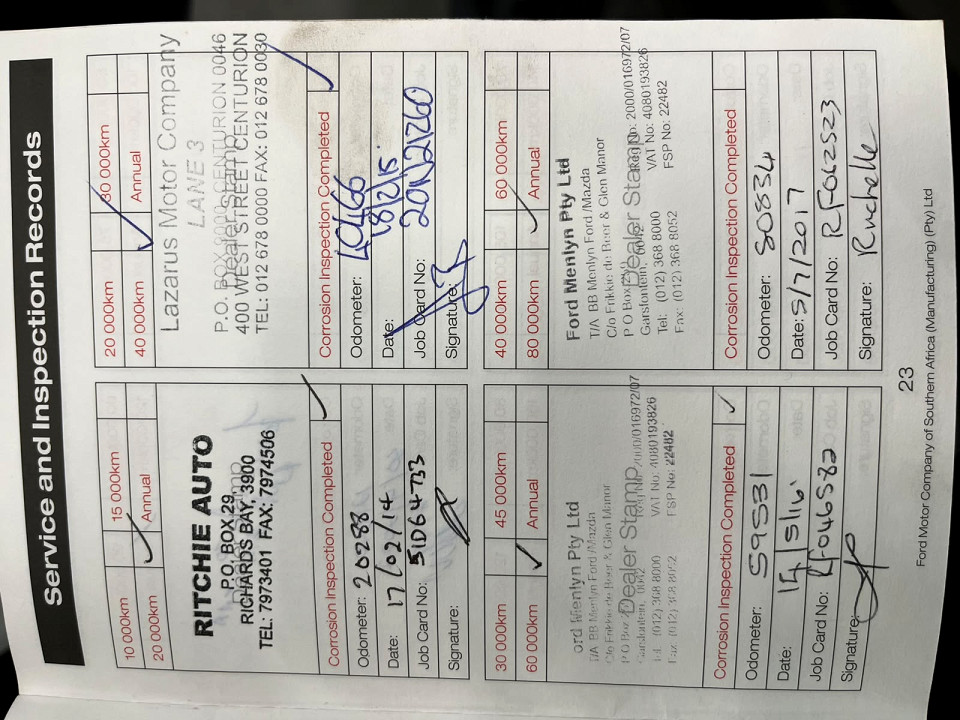 Service and Inspection Records
10 000km 15 000km
20 000km ✓ Annual
RITCHIE AUTO
P.O. BOX 29
RICHARDS BAY, 3900
TEL: 7973401 FAX: 7974506
Corrosion Inspection Completed ✓
Odometer: 20288
Date: 17/02/14
Job Card No: 51D64733
Signature:
20 000km 30 000km
40 000km ✓ Annual
Lazarus Motor Company
LANE 3
P.O. BOX CENTURION 0046
Dealer Stamp
400 WEST STREET CENTURION
TEL: 012 678 0000 FAX: 012 678 0030
Corrosion Inspection Completed ✓
Odometer: 40466
Date: 18/2/15
Job Card No:
Signature:
30 000km 45 000km
60 000km ✓ Annual
ord Menlyn Pty Ltd
T/A BB Menlyn Ford /Mazda
C/o Frikkie de Beer & Glen Manor
P O Box
Dealer Stamp
Garsfontein, 0042
Tel: (012) 368 8000
Fax: (012) 368 8052
2000/016972/07
VAT No: 4080193826
FSP No: 22482
Corrosion Inspection Completed ✓
Odometer: 59531
Date:
Job Card No:
Signature:
40 000km 60 000km
80 000km ✓ Annual
Ford Menlyn Pty Ltd
T/A BB Menlyn Ford /Mazda
C/o Frikkie de Beer & Glen Manor
P O Box
Dealer Stamp
Garsfontein, 0042
Tel: (012) 368 8000
Fax: (012) 368 8052
Reg No: 2000/016972/07
VAT No: 4080193826
FSP No: 22482
Corrosion Inspection Completed
Odometer: 80834
Date: 5/7/2017
Job Card No: RF042523
Signature: Ruchelle
23
Ford Motor Company of Southern Africa (Manufacturing) (Pty) Ltd